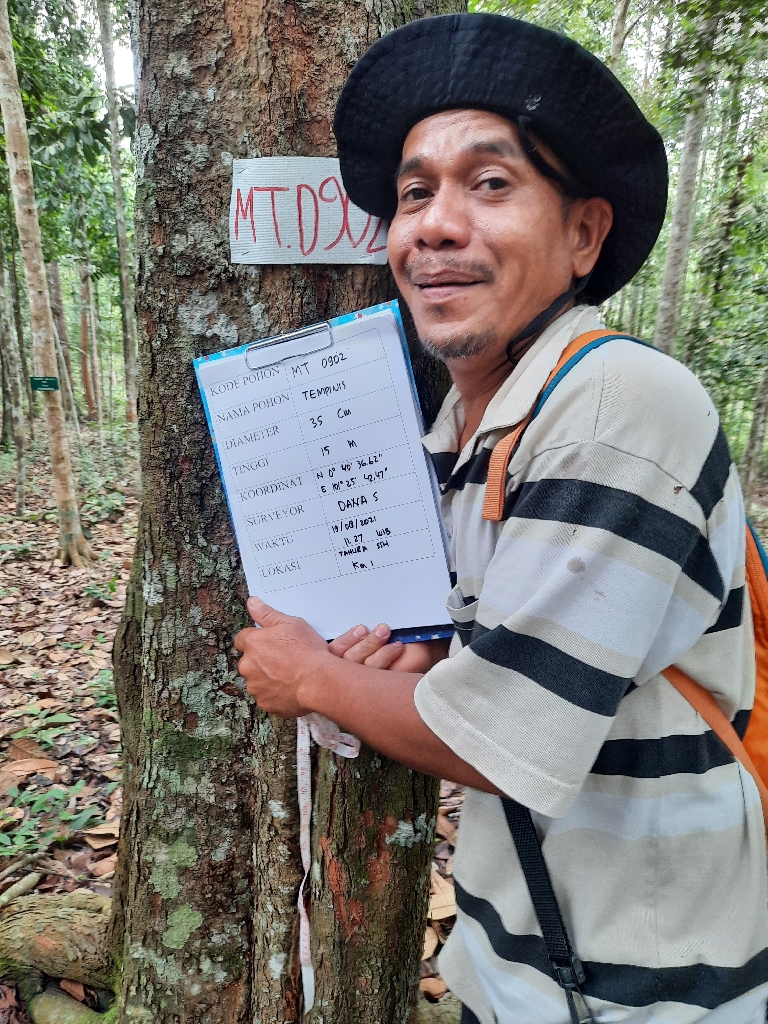 MT.D902
KODE POHON MT 0902
NAMA POHON TEMPINIS
DIAMETER 35 Cm
TINGGI 15 M
KOORDINAT N 0° 40' 36.62"
E 101° 25' 42.47"
SURVEYOR DANA S
WAKTU 19/08/2021
11.27 WIB
LOKASI TAHURA SSH
Km 1